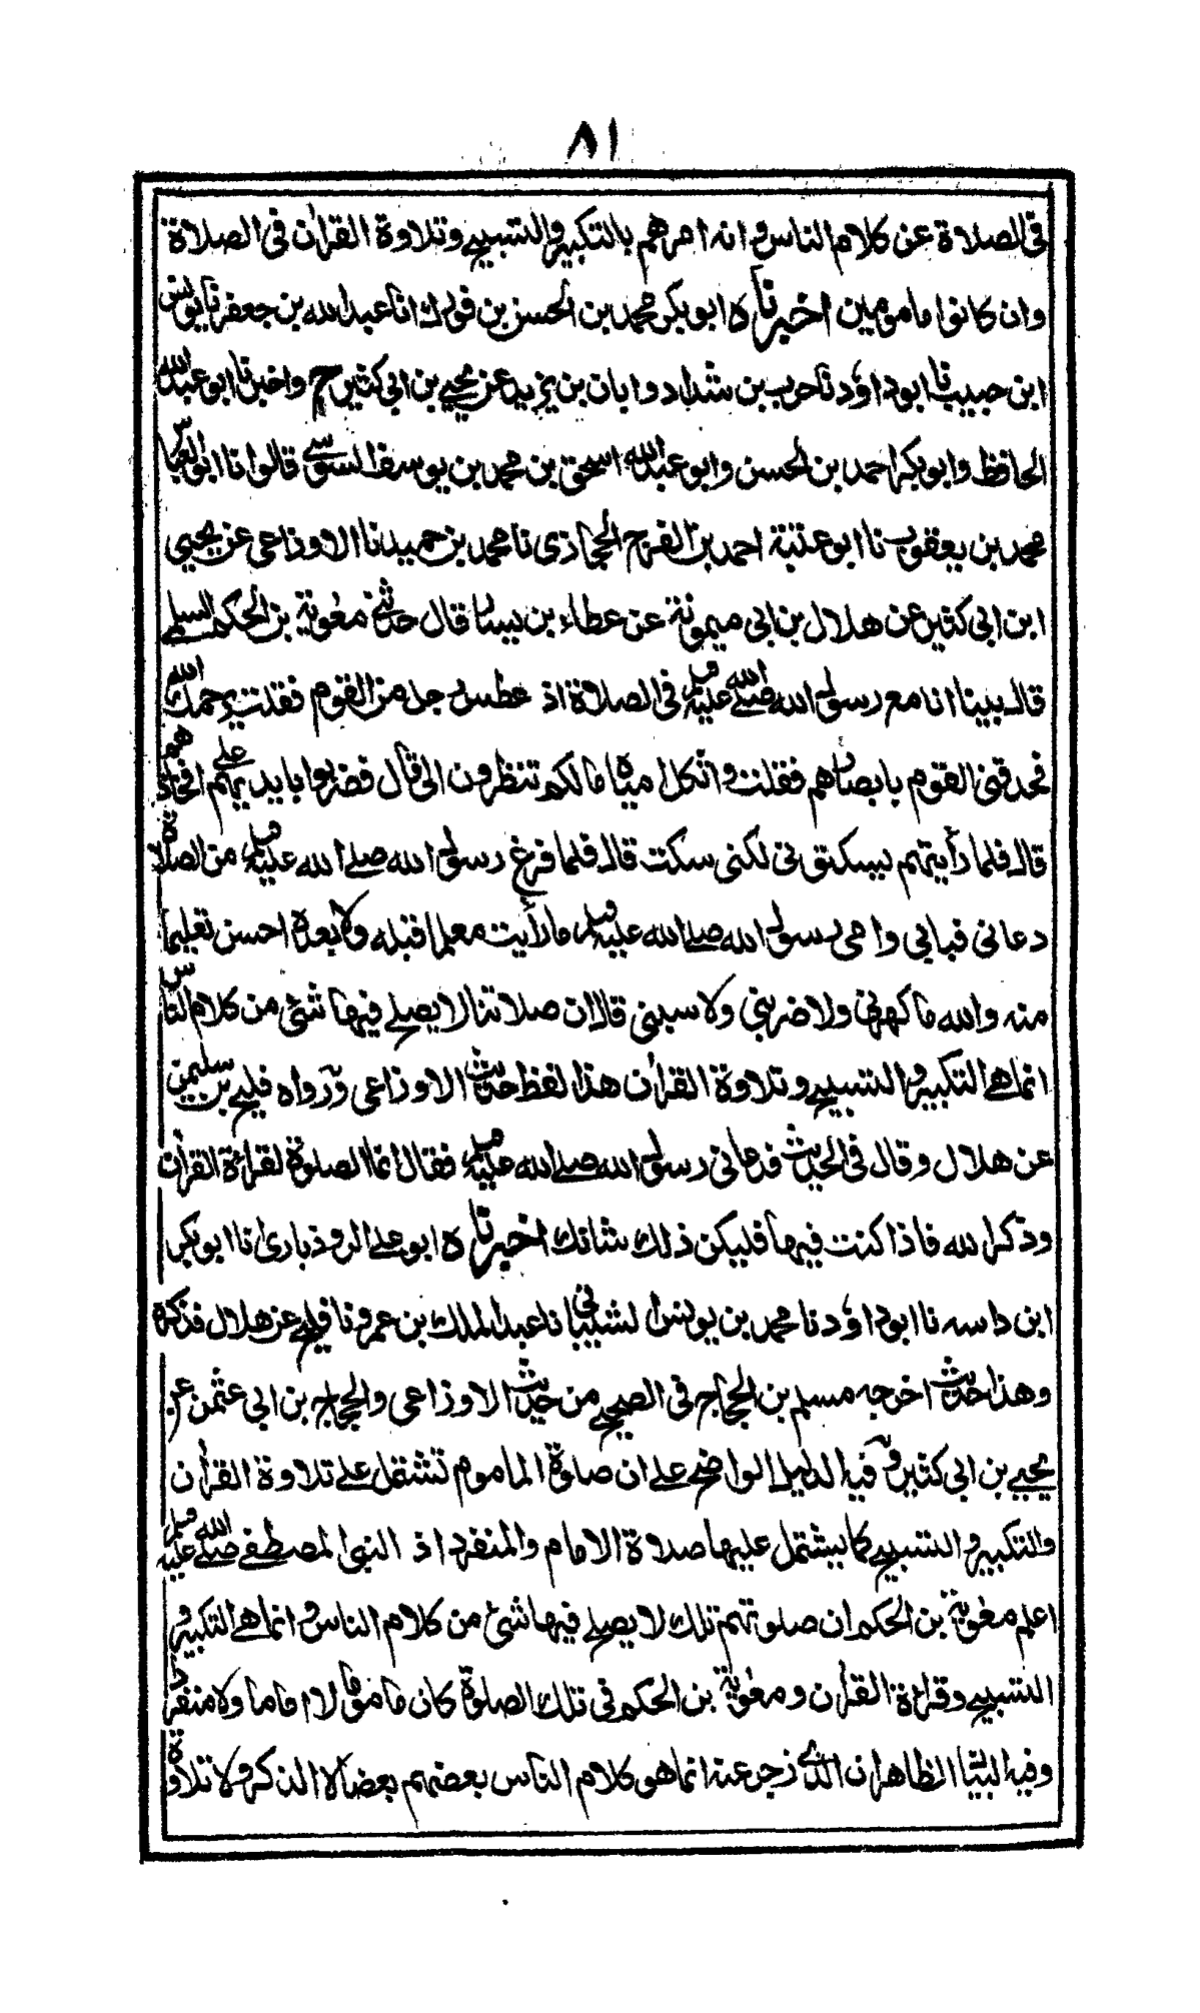 ٨١
فى الصلاة عن كلام الناس وانه امرهم بالتكبير والتسبيح وتلاوة القران فى الصلاة
وان كانوا مامومين اخبرناه ابو بكر محمد بن الحسن بن فورك انا عبد الله بن جعفر نا يونس
ابن حبيب نا ابو داؤد نا حرب بن شداد وابان بن يزيد عن يحيى بن ابى كثير ح واخبرنا ابو عبد الله
الحافظ وابو بكر احمد بن الحسن وابو عبد الله اسحق بن محمد بن يوسف السوسى قالوا نا ابو العباس
محمد بن يعقوب نا ابو عتبة احمد بن الفرج الحجازى نا محمد بن حميد نا الاوزاعى عن يحيى
ابن ابى كثير عن هلال بن ابى ميمونة عن عطاء بن يسار قال حدثنى معوية بن الحكم السلمى
قال بينا انا مع رسول الله صلى الله عليه وسلم فى الصلاة اذ عطس رجل من القوم فقلت يرحمك الله
فحدقنى القوم بابصارهم فقلت واثكل امياه مالكم تنظرون الى قال فضربوا بايديهم على افخاذهم
قال فلما رأيتهم يسكتونى لكنى سكت قال فلما فرغ رسول الله صلى الله عليه وسلم من الصلاة
دعانى فبابى وامى رسول الله صلى الله عليه وسلم ما رأيت معلما قبله ولا بعده احسن تعليما
منه والله ما كهرنى ولا ضربنى ولا سبنى قال ان صلاتنا لا يصلح فيها شئ من كلام الناس
انما هى التكبير والتسبيح وتلاوة القران هذا لفظ حديث الاوزاعى ورواه فليح بن سليمن
عن هلال وقال فى الحديث فدعانى رسول الله صلى الله عليه وسلم فقال انما الصلوة لقراءة القران
وذكر الله فاذا كنت فيها فليكن ذلك شانك اخبرناه ابو على الروذبارى انا ابو بكر
ابن داسه نا ابو داؤد نا محمد بن يونس الشيبانى نا عبد الملك بن عمرو نا فليح عن هلال فذكره
وهذا حديث اخرجه مسلم بن الحجاج فى الصحيح من حديث الاوزاعى والحجاج بن ابى عثمن عن
يحيى بن ابى كثير وفيه الدليل الواضح على ان صلوة الماموم تشتمل على تلاوة القران
والتكبير والتسبيح كما يشتمل عليها صلاة الامام والمنفرد اذ النبى المصطفى صلى الله عليه وسلم
اعلم معوية بن الحكم ان صلوتهم تلك لا يصلح فيها شئ من كلام الناس وانما هى التكبير و
التسبيح وقراءة القران ومعوية بن الحكم فى تلك الصلوة كان ماموما لا اماما ولا منفردا
وفيه البيان الظاهر ان الذى زجر عنه انما هو كلام الناس بعضهم بعضا لا الذكر ولا تلاوة